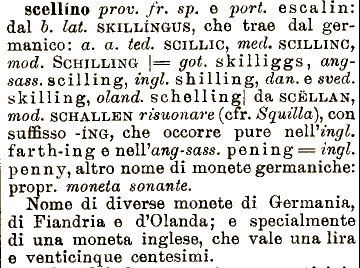 scellíno prov. fr. sp. e port. escalin:
dal b. lat. SKILLÍNGUS, che trae dal ger-
manico: a. a. ted. SCILLIC, med. SCILLINC,
mod. SCHILLING |= got. skilliggs, ang-
sass. scilling, ingl. shilling, dan. e sved.
skilling, oland. schelling| da SCËLLAN,
mod. SCHALLEN risuonare (cfr. Squilla), con
suffisso -ÍNG, che occorre pure nell'ingl.
farth-ing e nell'ang-sass. pening = ingl.
penny, altro nome di monete germaniche:
propr. moneta sonante.
Nome di diverse monete di Germania,
di Fiandria e d'Olanda; e specialmente
di una moneta inglese, che vale una lira
e venticinque centesimi.